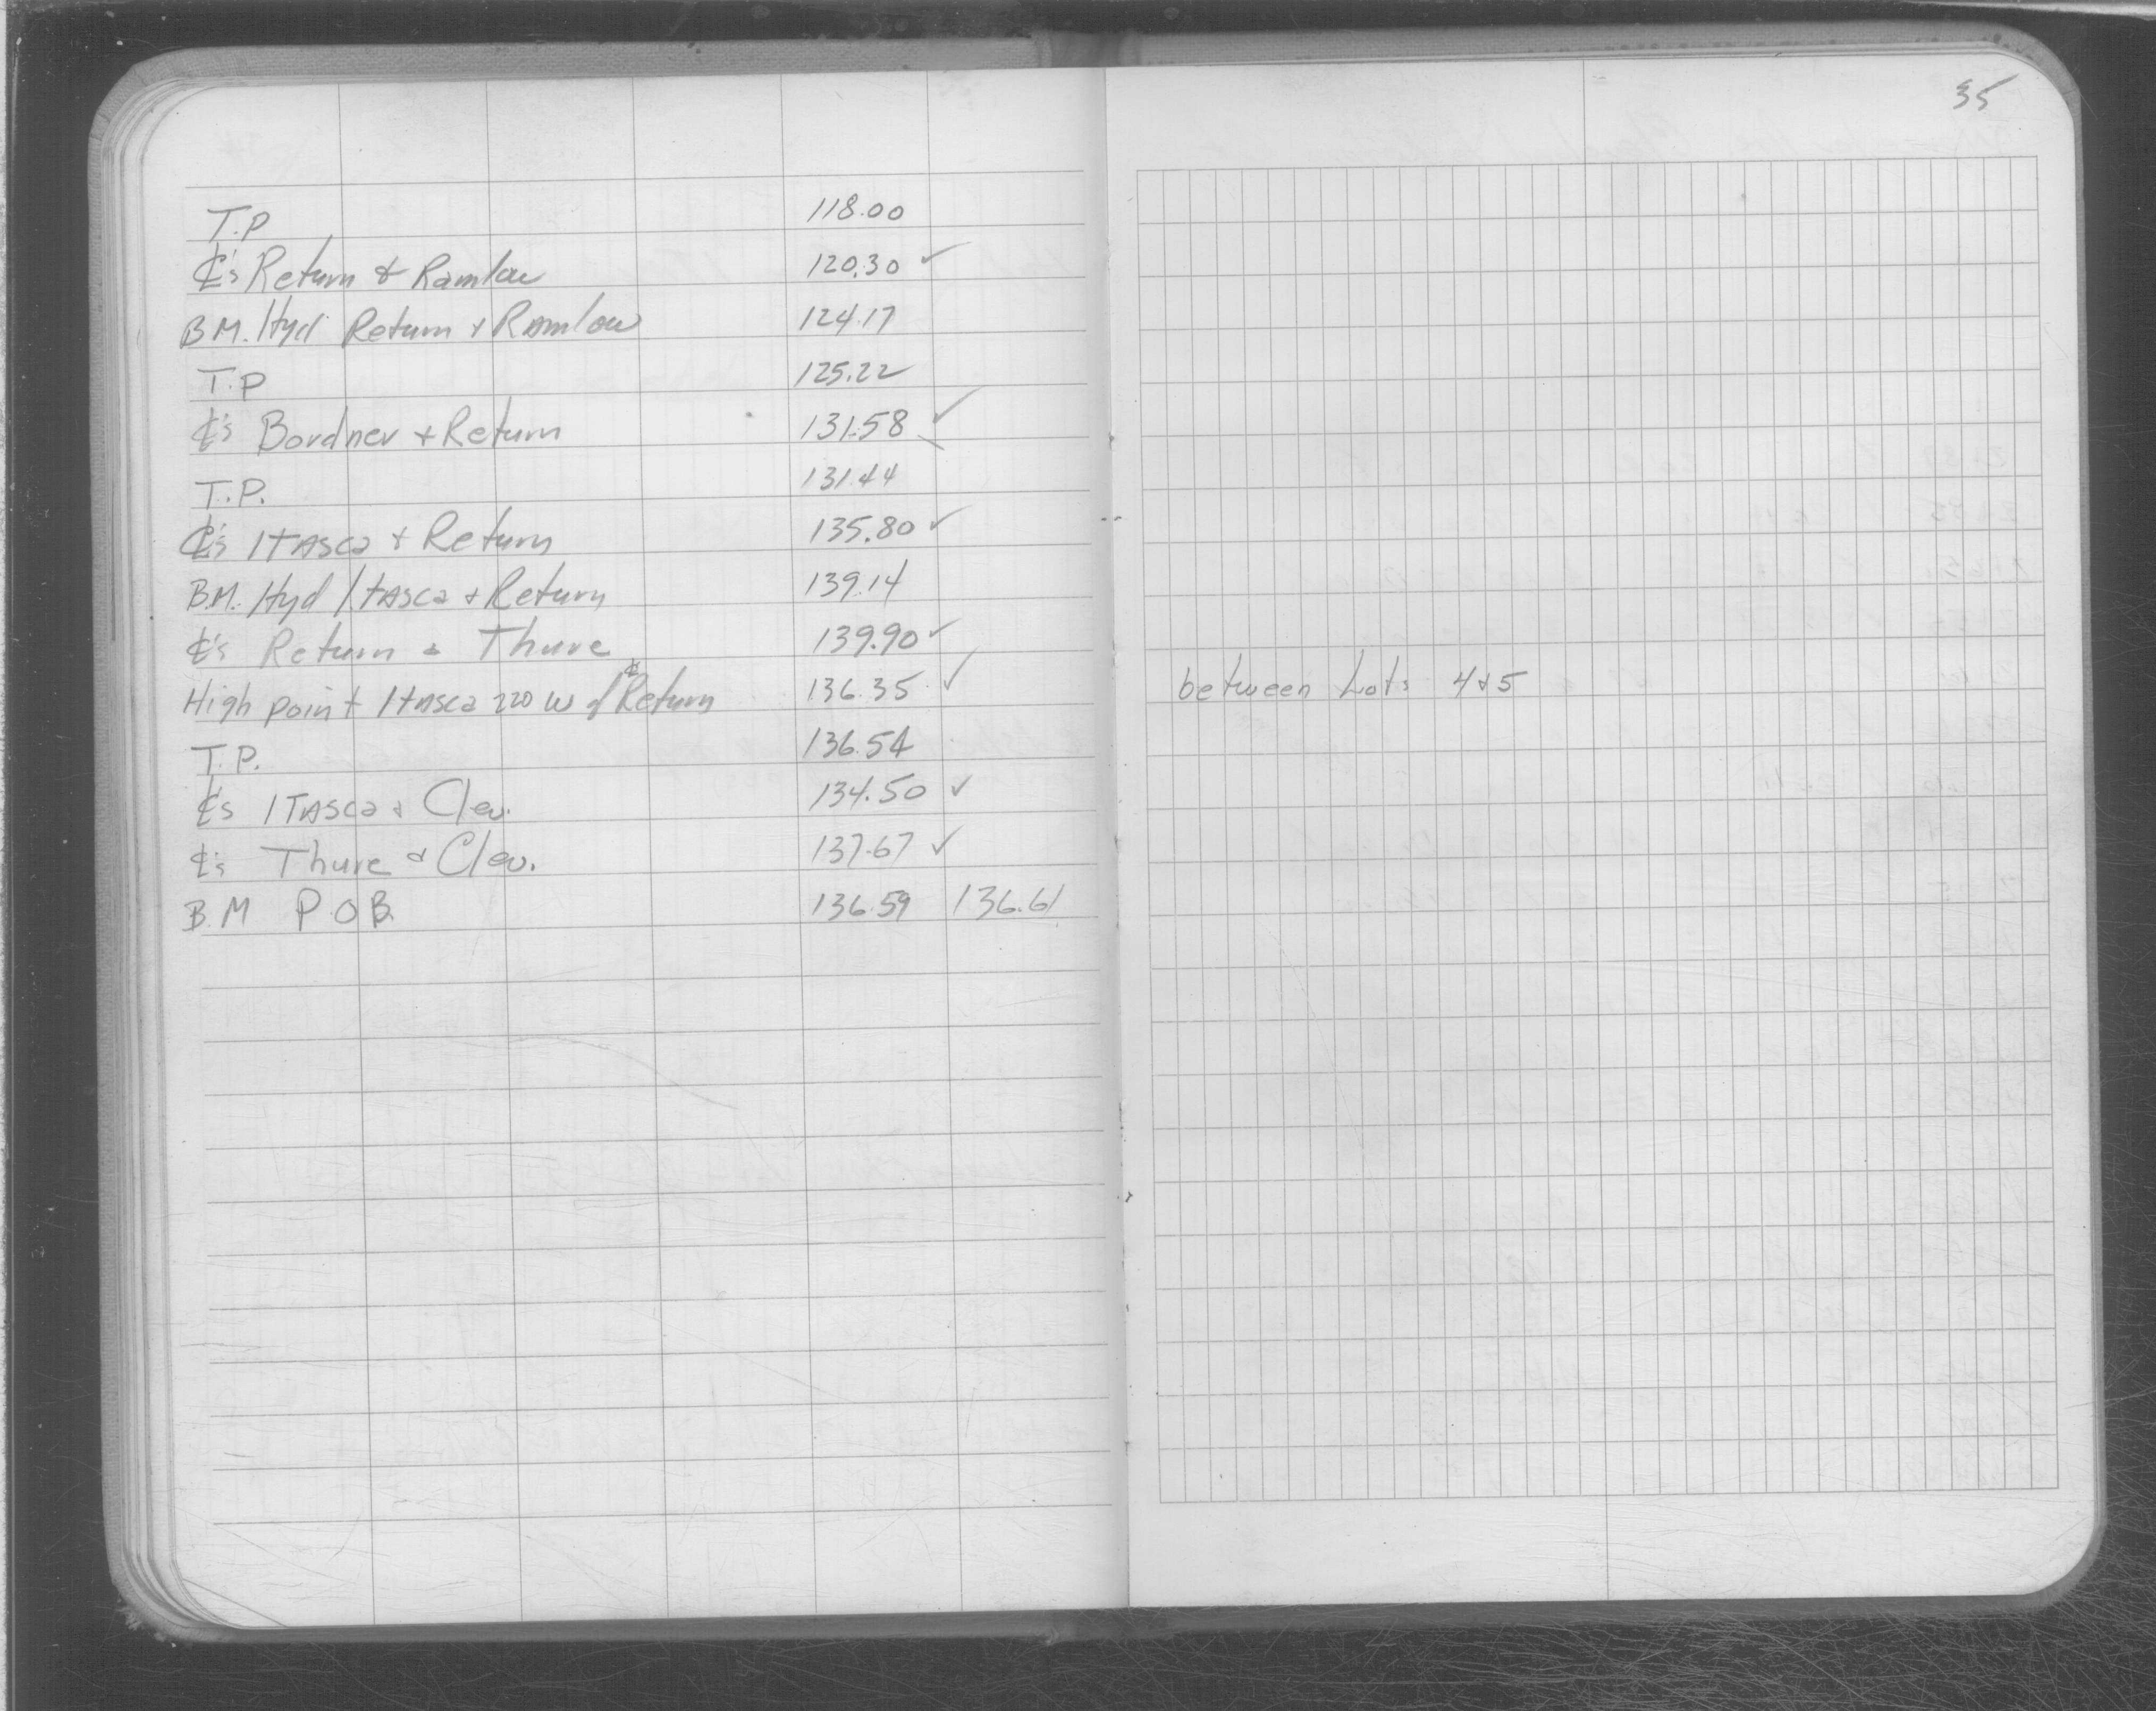 35
T.P 118.00
℄'s Return & Ramlow 120.30 ✓
B.M. Hyd Return & Ramlow 124.17
T.P 125.22
℄'s Bordner & Return 131.58 ✓
T.P. 131.44
℄'s Itasca & Return 135.80 ✓
B.M. Hyd Itasca & Return 139.14
℄'s Return & Thure 139.90 ✓
High point Itasca 220 W of ℄ Return 136.35 ✓ between Lots 4&5
T.P. 136.54
℄'s Itasca & Clev. 134.50 ✓
℄'s Thure & Clev. 137.67 ✓
B.M P.O.B. 136.59 136.61